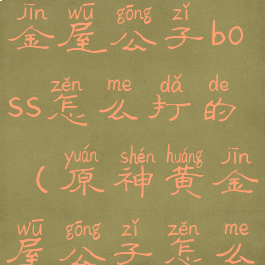 jīn wū gōng zǐ
金屋公子bo
zěn me dǎ de
ss怎么打的
yuán shén huáng jīn
(原神黄金
wū gōng zǐ zěn me
屋公子怎么